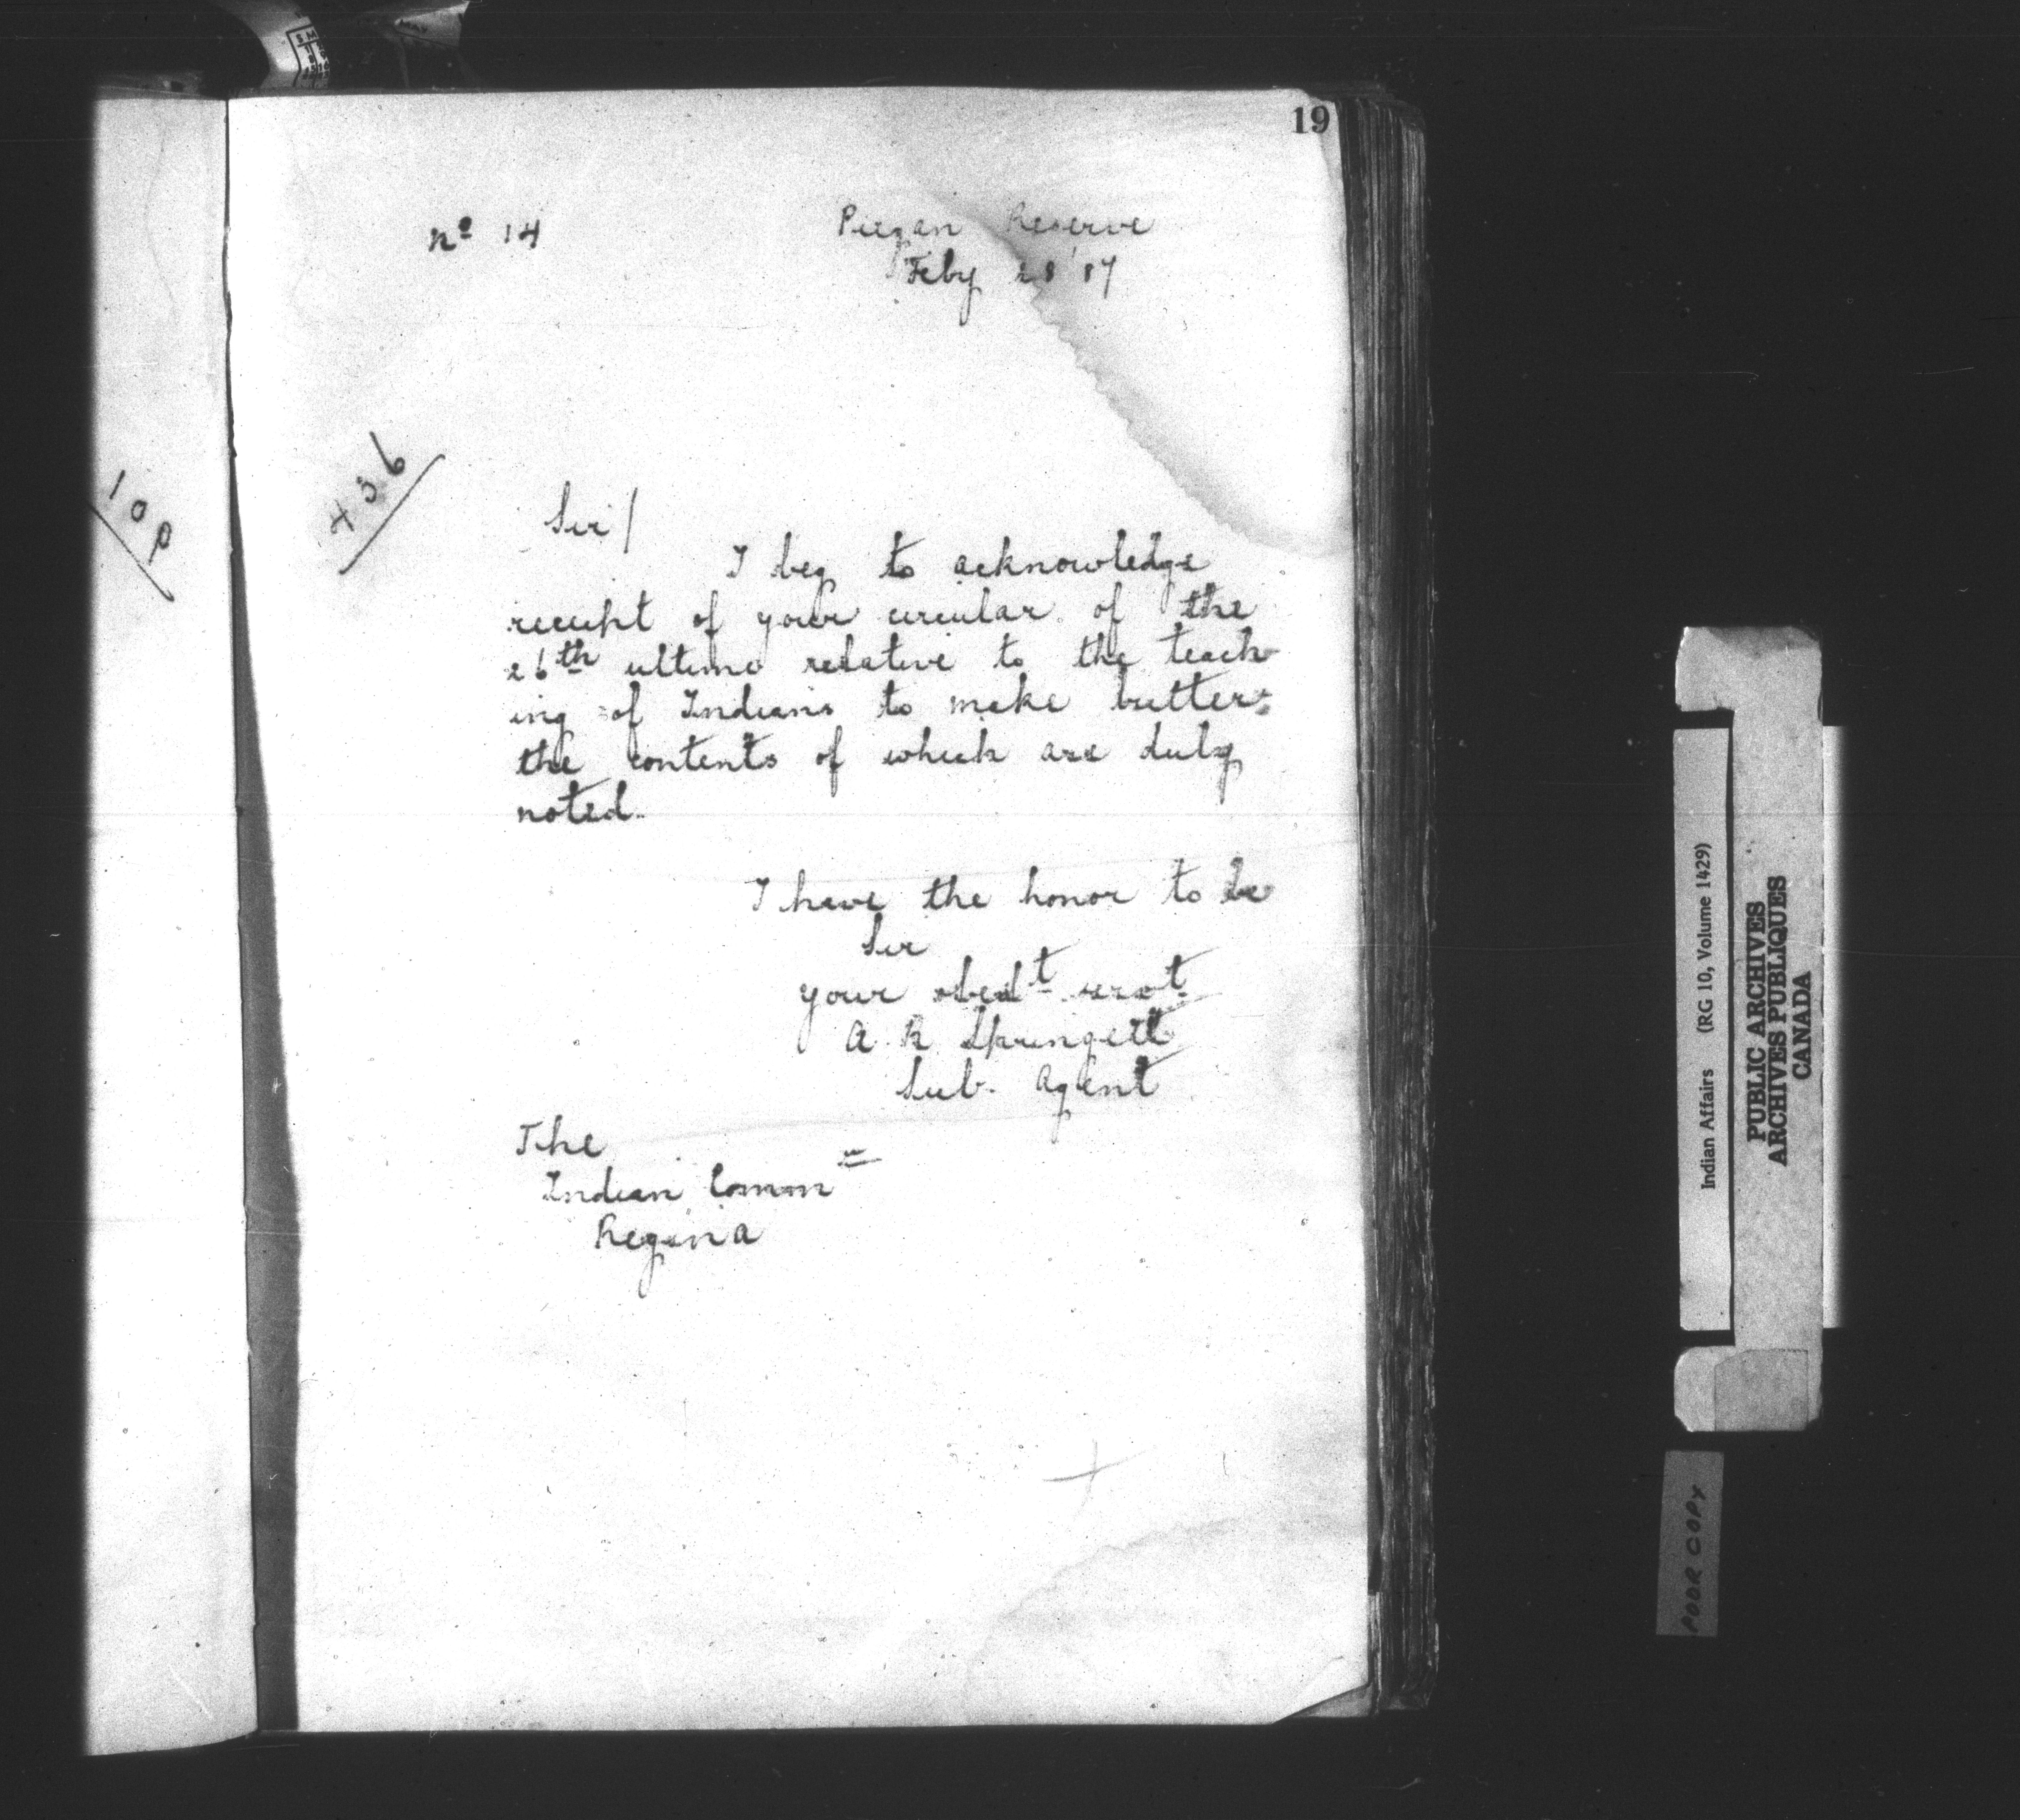 19
No 14
Piegan Reserve
Feby 28 '87
100
436
Sir/
I beg to acknowledge
receipt of your circular of the
26th ultimo relative to the teach-
ing of Indians to make butter;
the contents of which are duly
noted.
I have the honor to be
Sir
your obedt servt
A R Springett
Sub. Agent
The
Indian Commr
Regina
Indian Affairs (RG 10, Volume 1429)
PUBLIC ARCHIVES
ARCHIVES PUBLIQUES
CANADA
POOR COPY